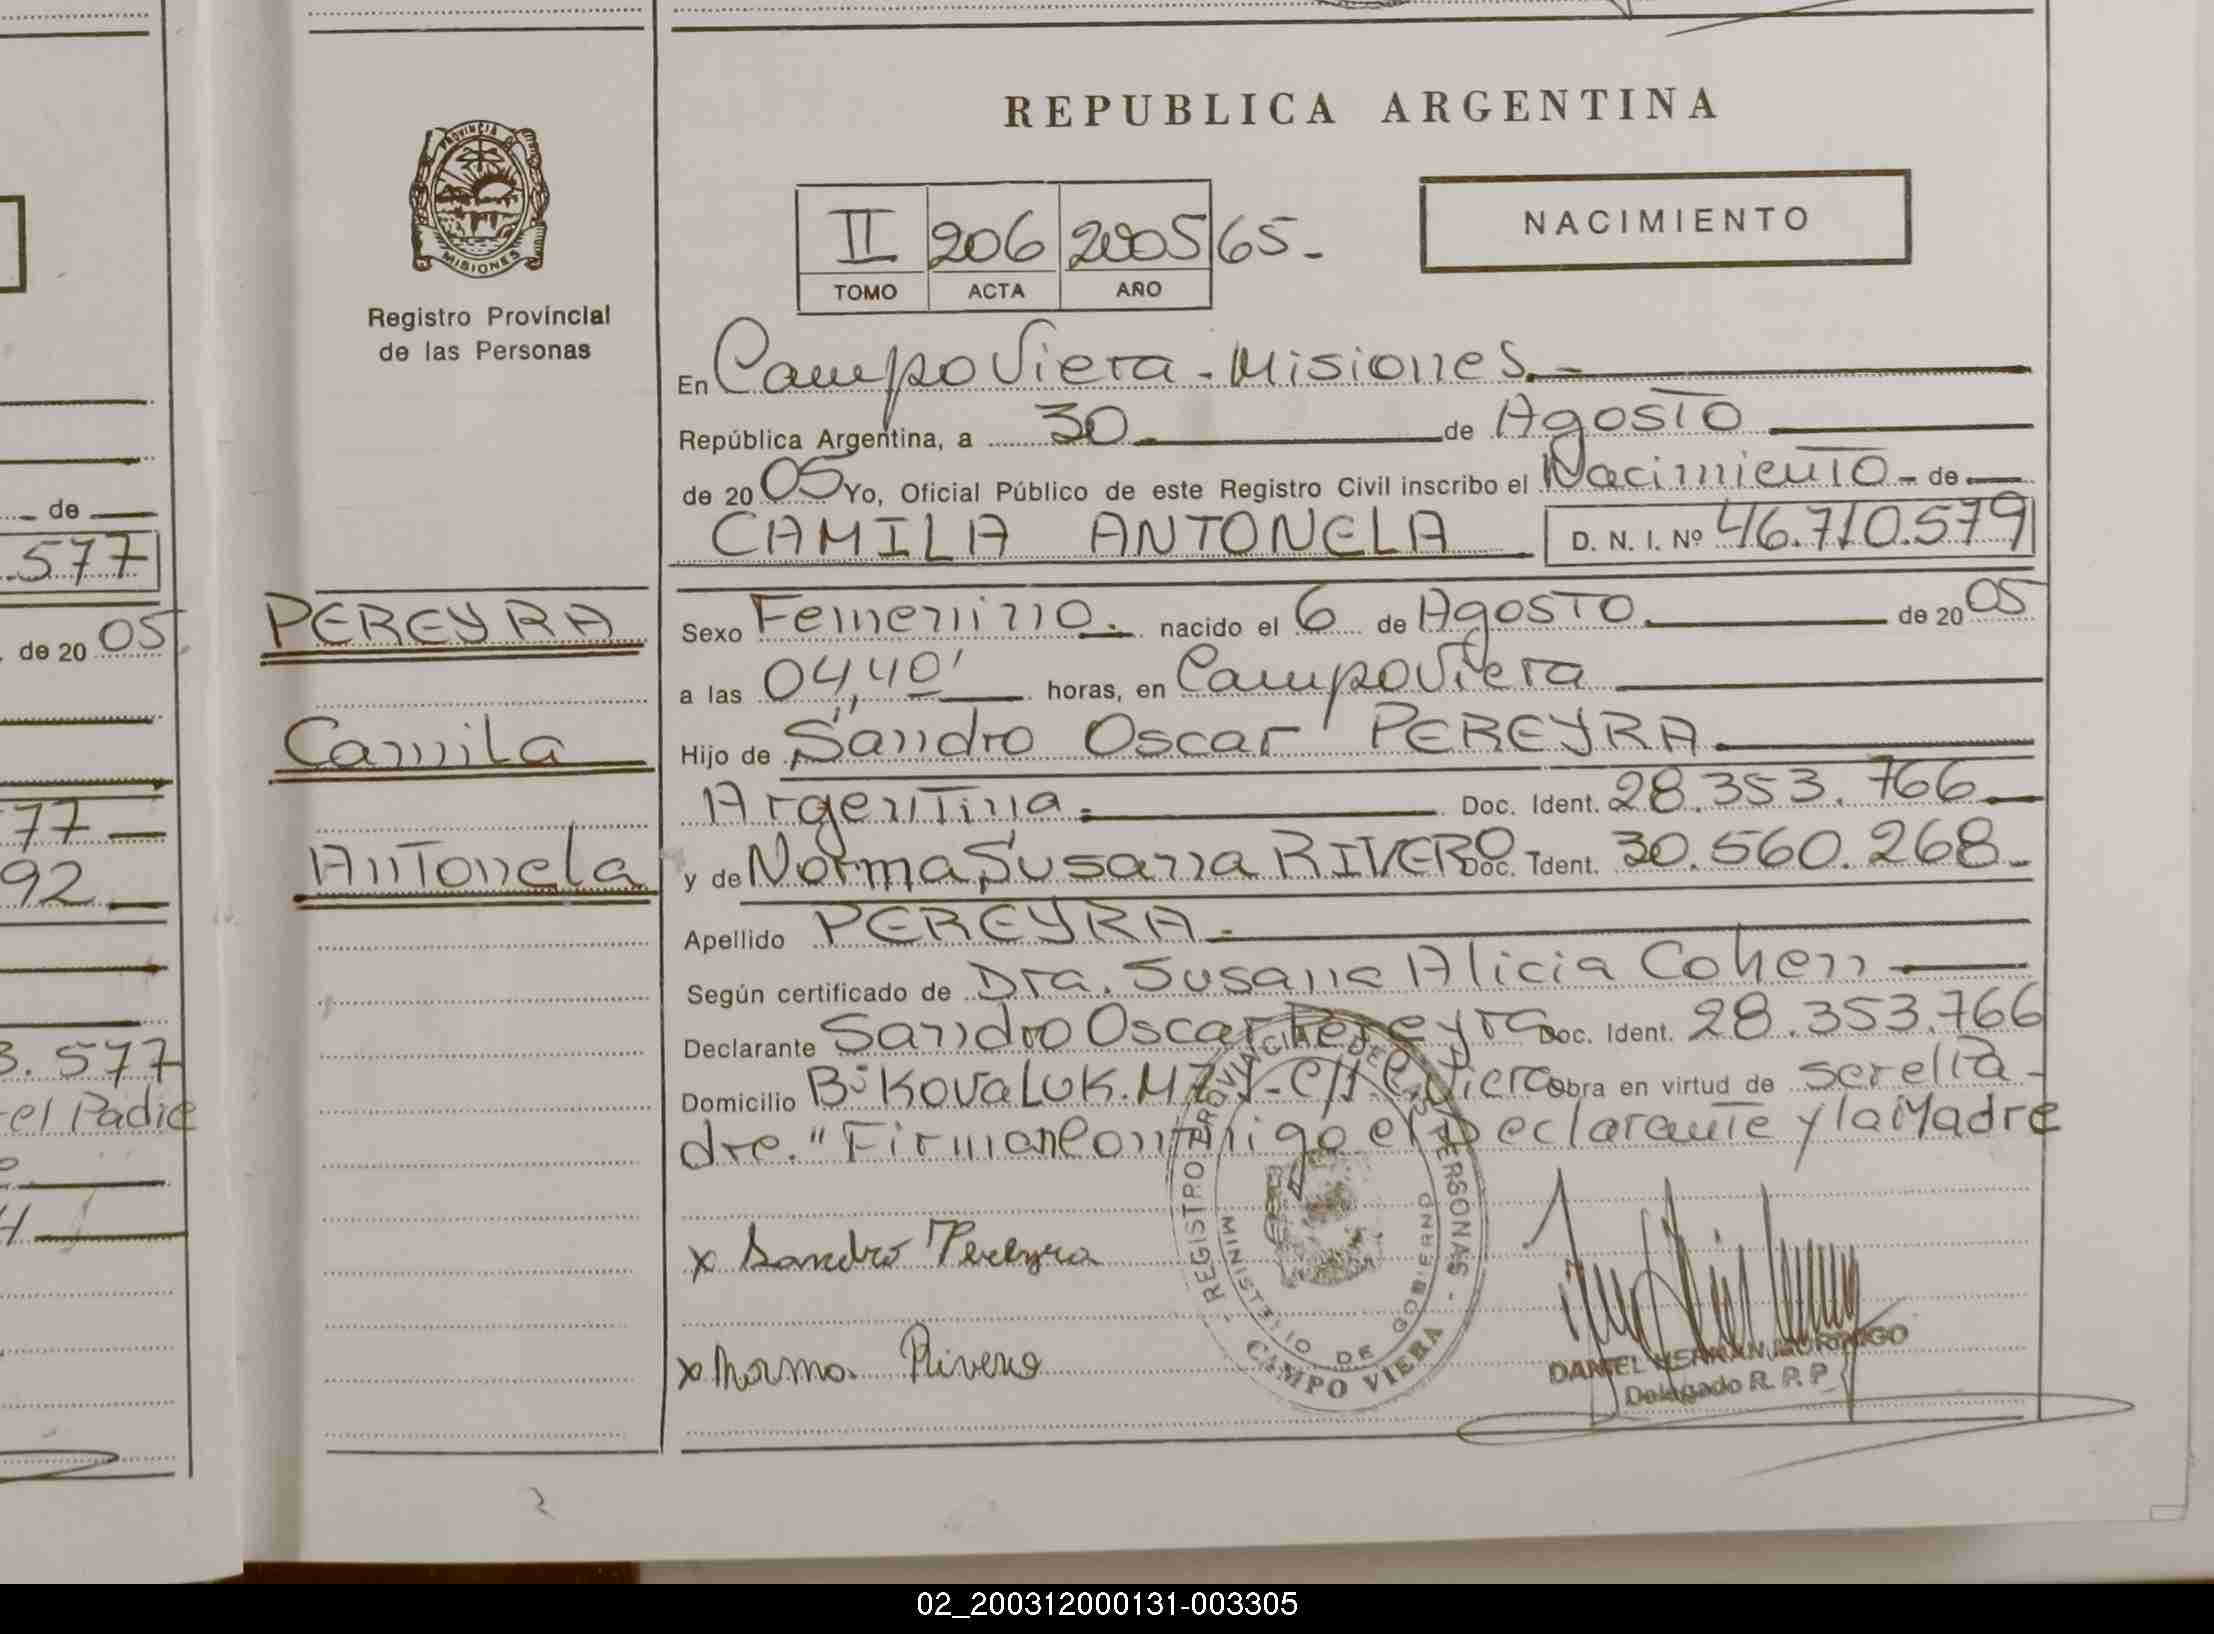 REPUBLICA ARGENTINA
PROVINCIA
MISIONES
Registro Provincial
de las Personas
II 206 2005 65.-
TOMO ACTA AÑO
NACIMIENTO
En Campo Viera - Misiones
República Argentina, a 30 de Agosto
de 20 05 Yo, Oficial Público de este Registro Civil inscribo el Nacimiento - de
CAMILA ANTONELA D. N. I. Nº 46.710.579
PEREYRA
Camila
Antonela
Sexo Femenino. nacido el 6 de Agosto de 20 05
a las 04,40' horas, en Campo Viera
Hijo de Sandro Oscar PEREYRA
Argentina. Doc. Ident. 28.353.766
y de Norma Susana RIVERO Doc. Ident. 30.560.268.-
Apellido PEREYRA.-
Según certificado de Dra. Susana Alicia Cohen
Declarante Sandro Oscar Pereyra Doc. Ident. 28.353.766
Domicilio Bº Kovaluk. MZ Viera Obra en virtud de ser el Pa-
dre. "Firman conmigo el Declarante y la Madre
x Sandro Pereyra
x Norma Rivero
REGISTRO PROVINCIAL DE LAS PERSONAS
MINISTERIO DE GOBIERNO
CAMPO VIERA
DANIEL HERNAN
Delegado R. P. P.
de
.577
de 20 05
77
92
3.577
el Padre
02_200312000131-003305